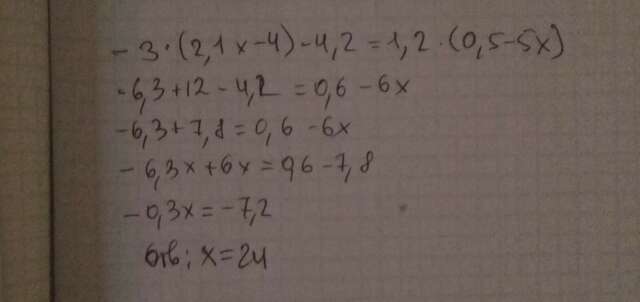 - 3 · (2,1x-4) - 4,2 = 1,2 · (0,5-5x)
-6,3+12 - 4,2 = 0,6 - 6x
-6,3+7,8 = 0,6 - 6x
- 6,3x + 6x = 06 - 7,8
- 0,3x = -7,2
Отв: x = 24